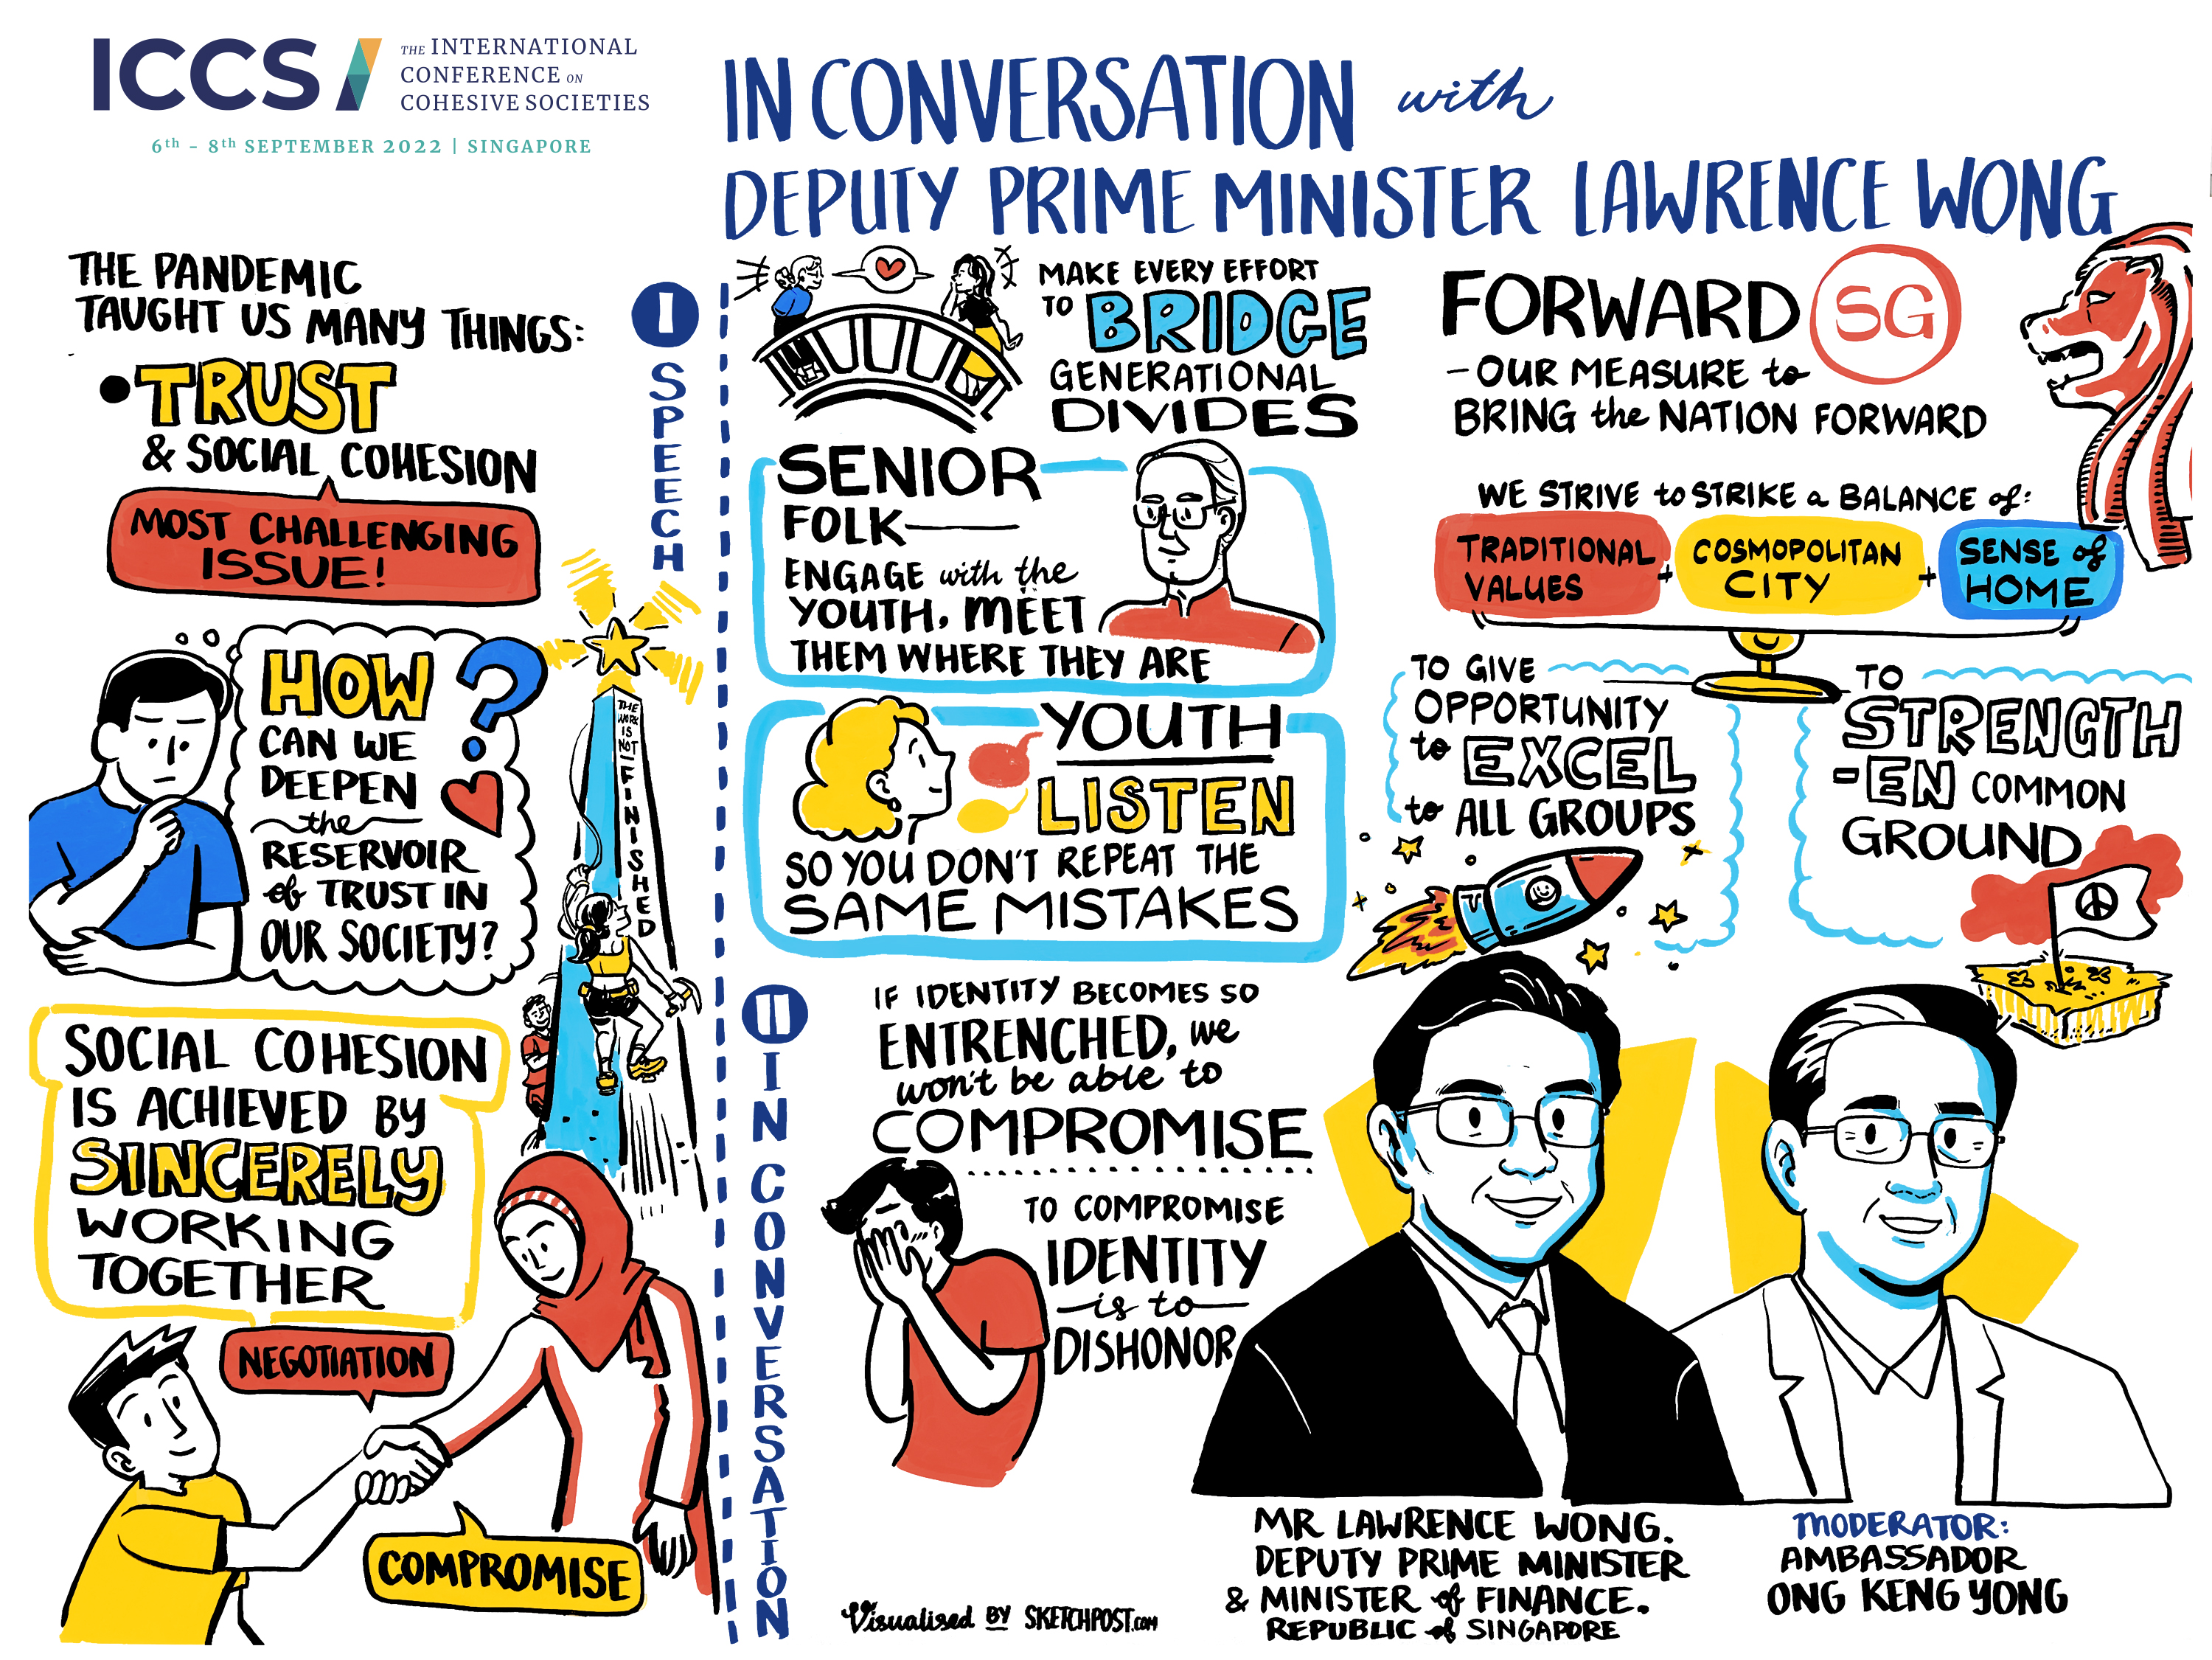 ICCS
THE INTERNATIONAL
CONFERENCE ON
COHESIVE SOCIETIES
6th - 8th SEPTEMBER 2022 | SINGAPORE
IN CONVERSATION with
DEPUTY PRIME MINISTER LAWRENCE WONG
THE PANDEMIC
TAUGHT US MANY THINGS:
• TRUST
& SOCIAL COHESION
MOST CHALLENGING
ISSUE!
HOW
CAN WE
DEEPEN
the
RESERVOIR
of TRUST IN
OUR SOCIETY?
?
THE
WORK
IS
NOT
FINISHED
SOCIAL COHESION
IS ACHIEVED BY
SINCERELY
WORKING
TOGETHER
NEGOTIATION
COMPROMISE
I
SPEECH
MAKE EVERY EFFORT
TO BRIDGE
GENERATIONAL
DIVIDES
SENIOR
FOLK
ENGAGE with the
YOUTH. MEET
THEM WHERE THEY ARE
YOUTH
LISTEN
SO YOU DON'T REPEAT THE
SAME MISTAKES
II
IN CONVERSATION
IF IDENTITY BECOMES SO
ENTRENCHED, we
won't be able to
COMPROMISE
TO COMPROMISE
IDENTITY
is to
DISHONOR
Visualised BY SKETCHPOST.COM
FORWARD SG
- OUR MEASURE to
BRING the NATION FORWARD
WE STRIVE to STRIKE a BALANCE of:
TRADITIONAL
VALUES
+
COSMOPOLITAN
CITY
+
SENSE of
HOME
TO GIVE
OPPORTUNITY
to EXCEL
to ALL GROUPS
TO
STRENGTH
-EN COMMON
GROUND
MR LAWRENCE WONG.
DEPUTY PRIME MINISTER
& MINISTER of FINANCE.
REPUBLIC of SINGAPORE
MODERATOR:
AMBASSADOR
ONG KENG YONG